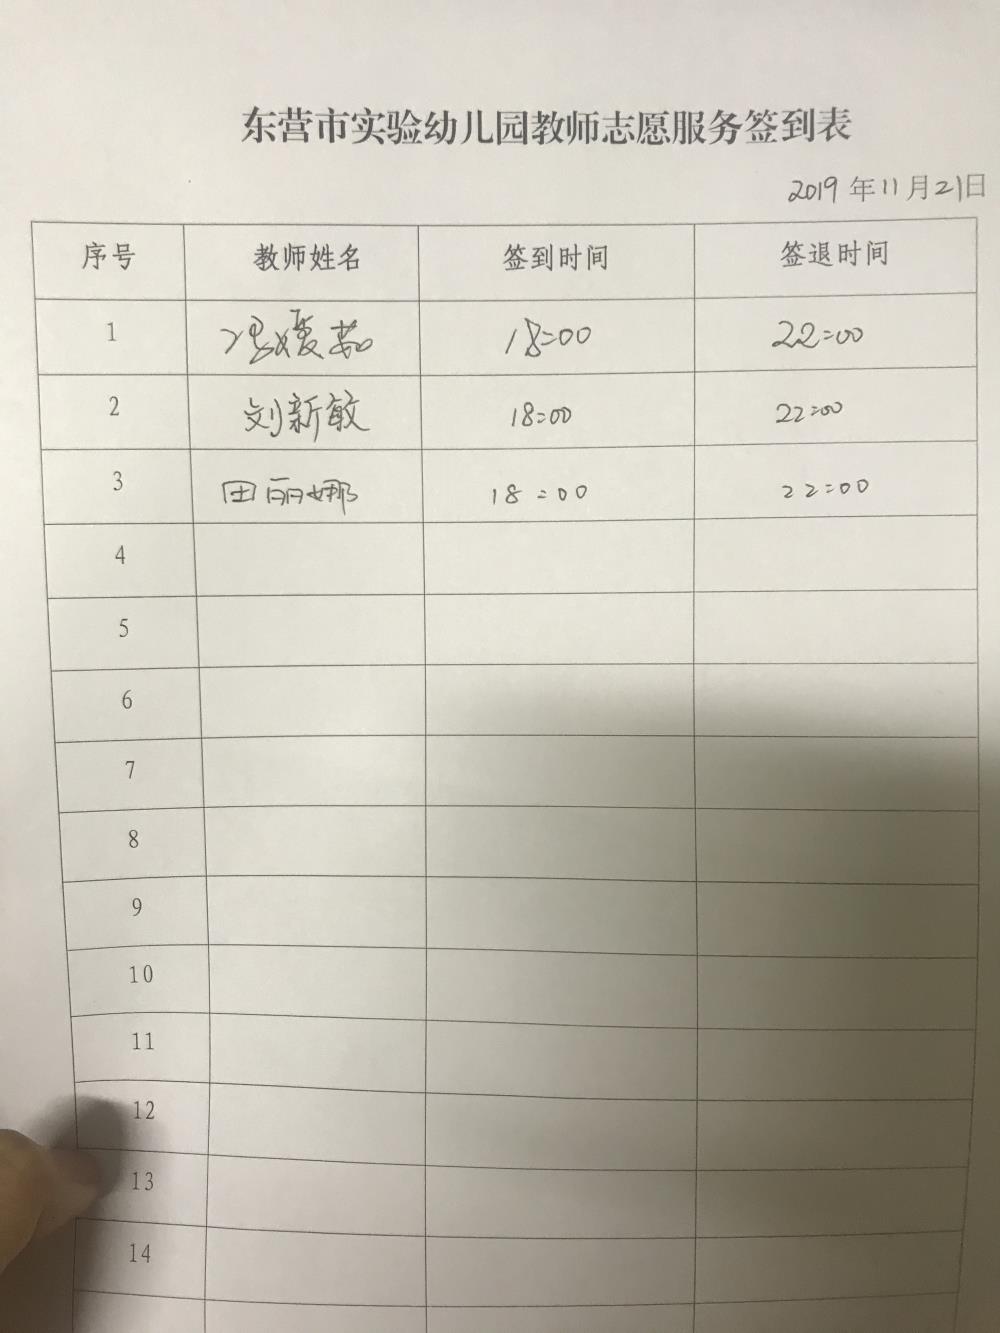 东营市实验幼儿园教师志愿服务签到表
2019年11月21日
序号 教师姓名 签到时间 签退时间
1 18:00 22:00
2 刘新敏 18:00 22:00
3 田丽娜 18:00 22:00
4
5
6
7
8
9
10
11
12
13
14